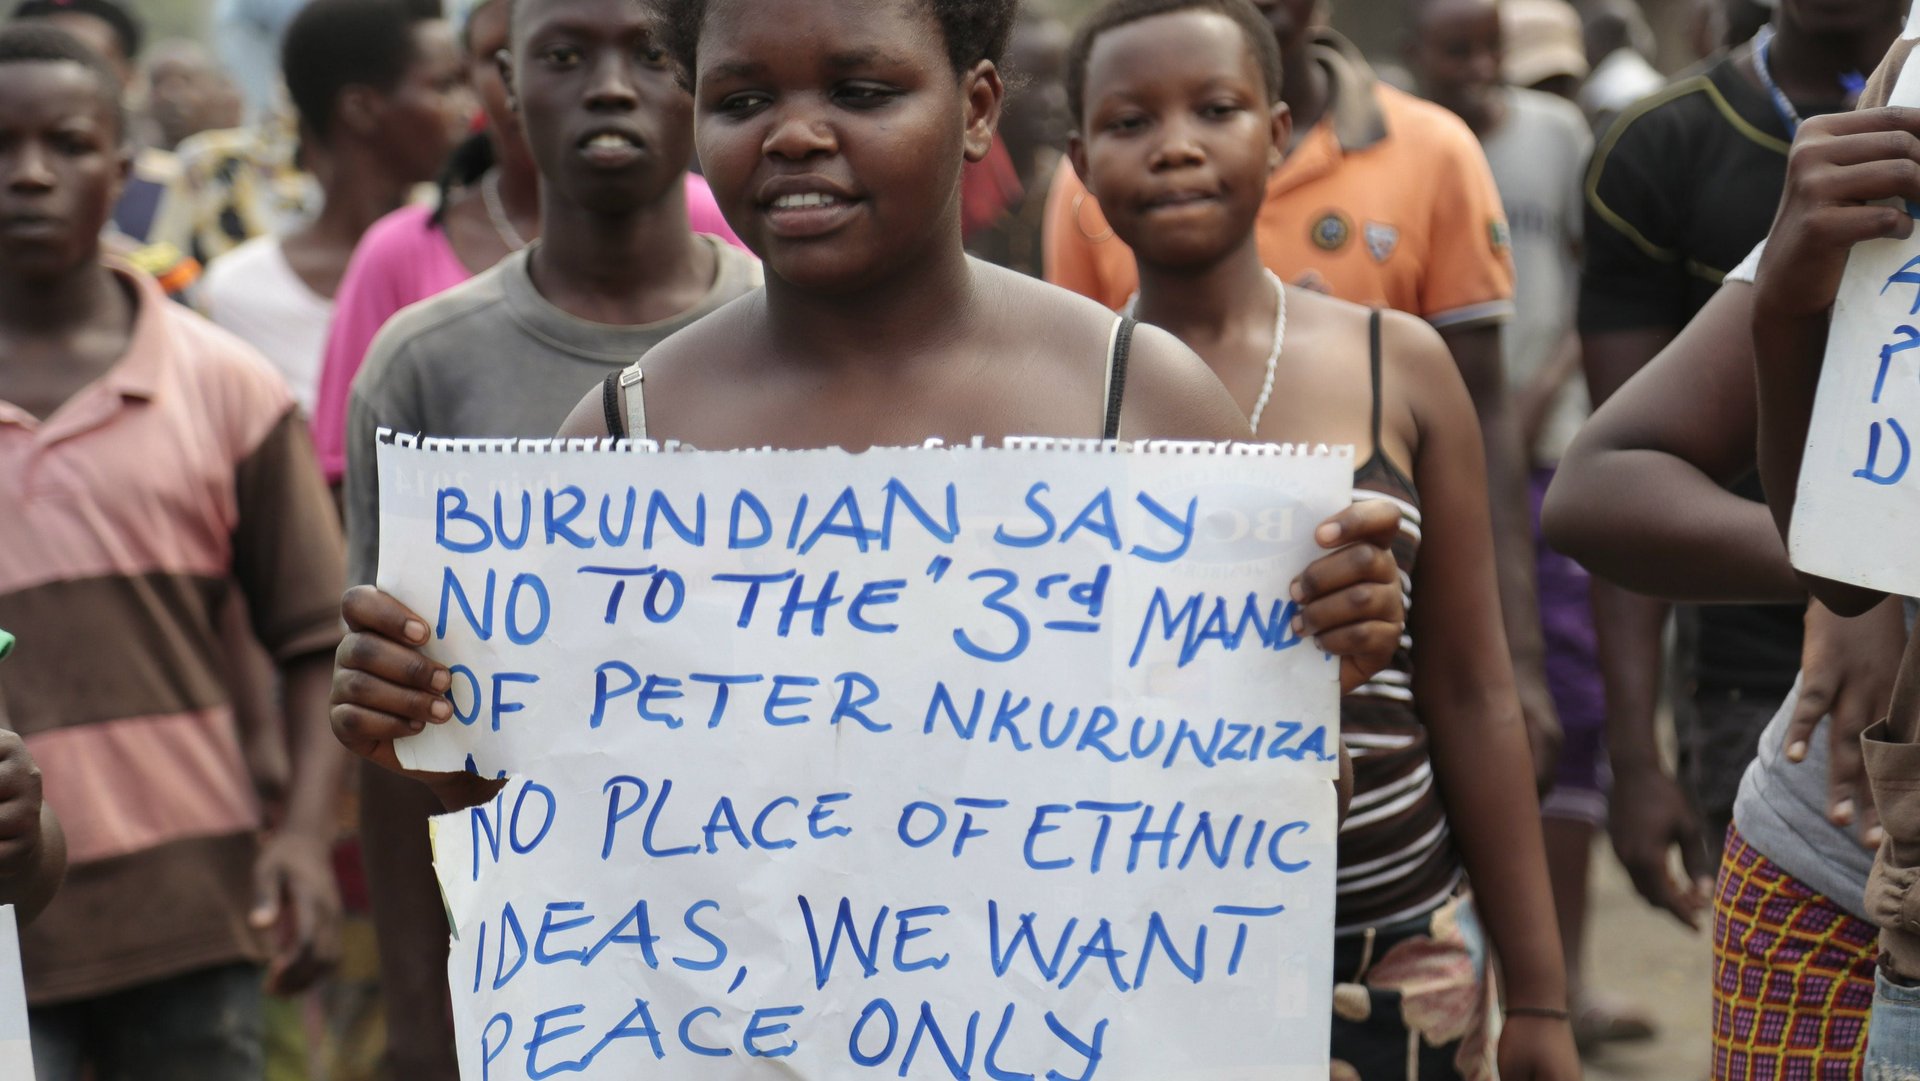 BURUNDIAN SAY
NO TO THE "3rd MAND
OF PETER NKURUNZIZA.
NO PLACE OF ETHNIC
IDEAS, WE WANT
PEACE ONLY
Juin 2014
BC
A
P
D